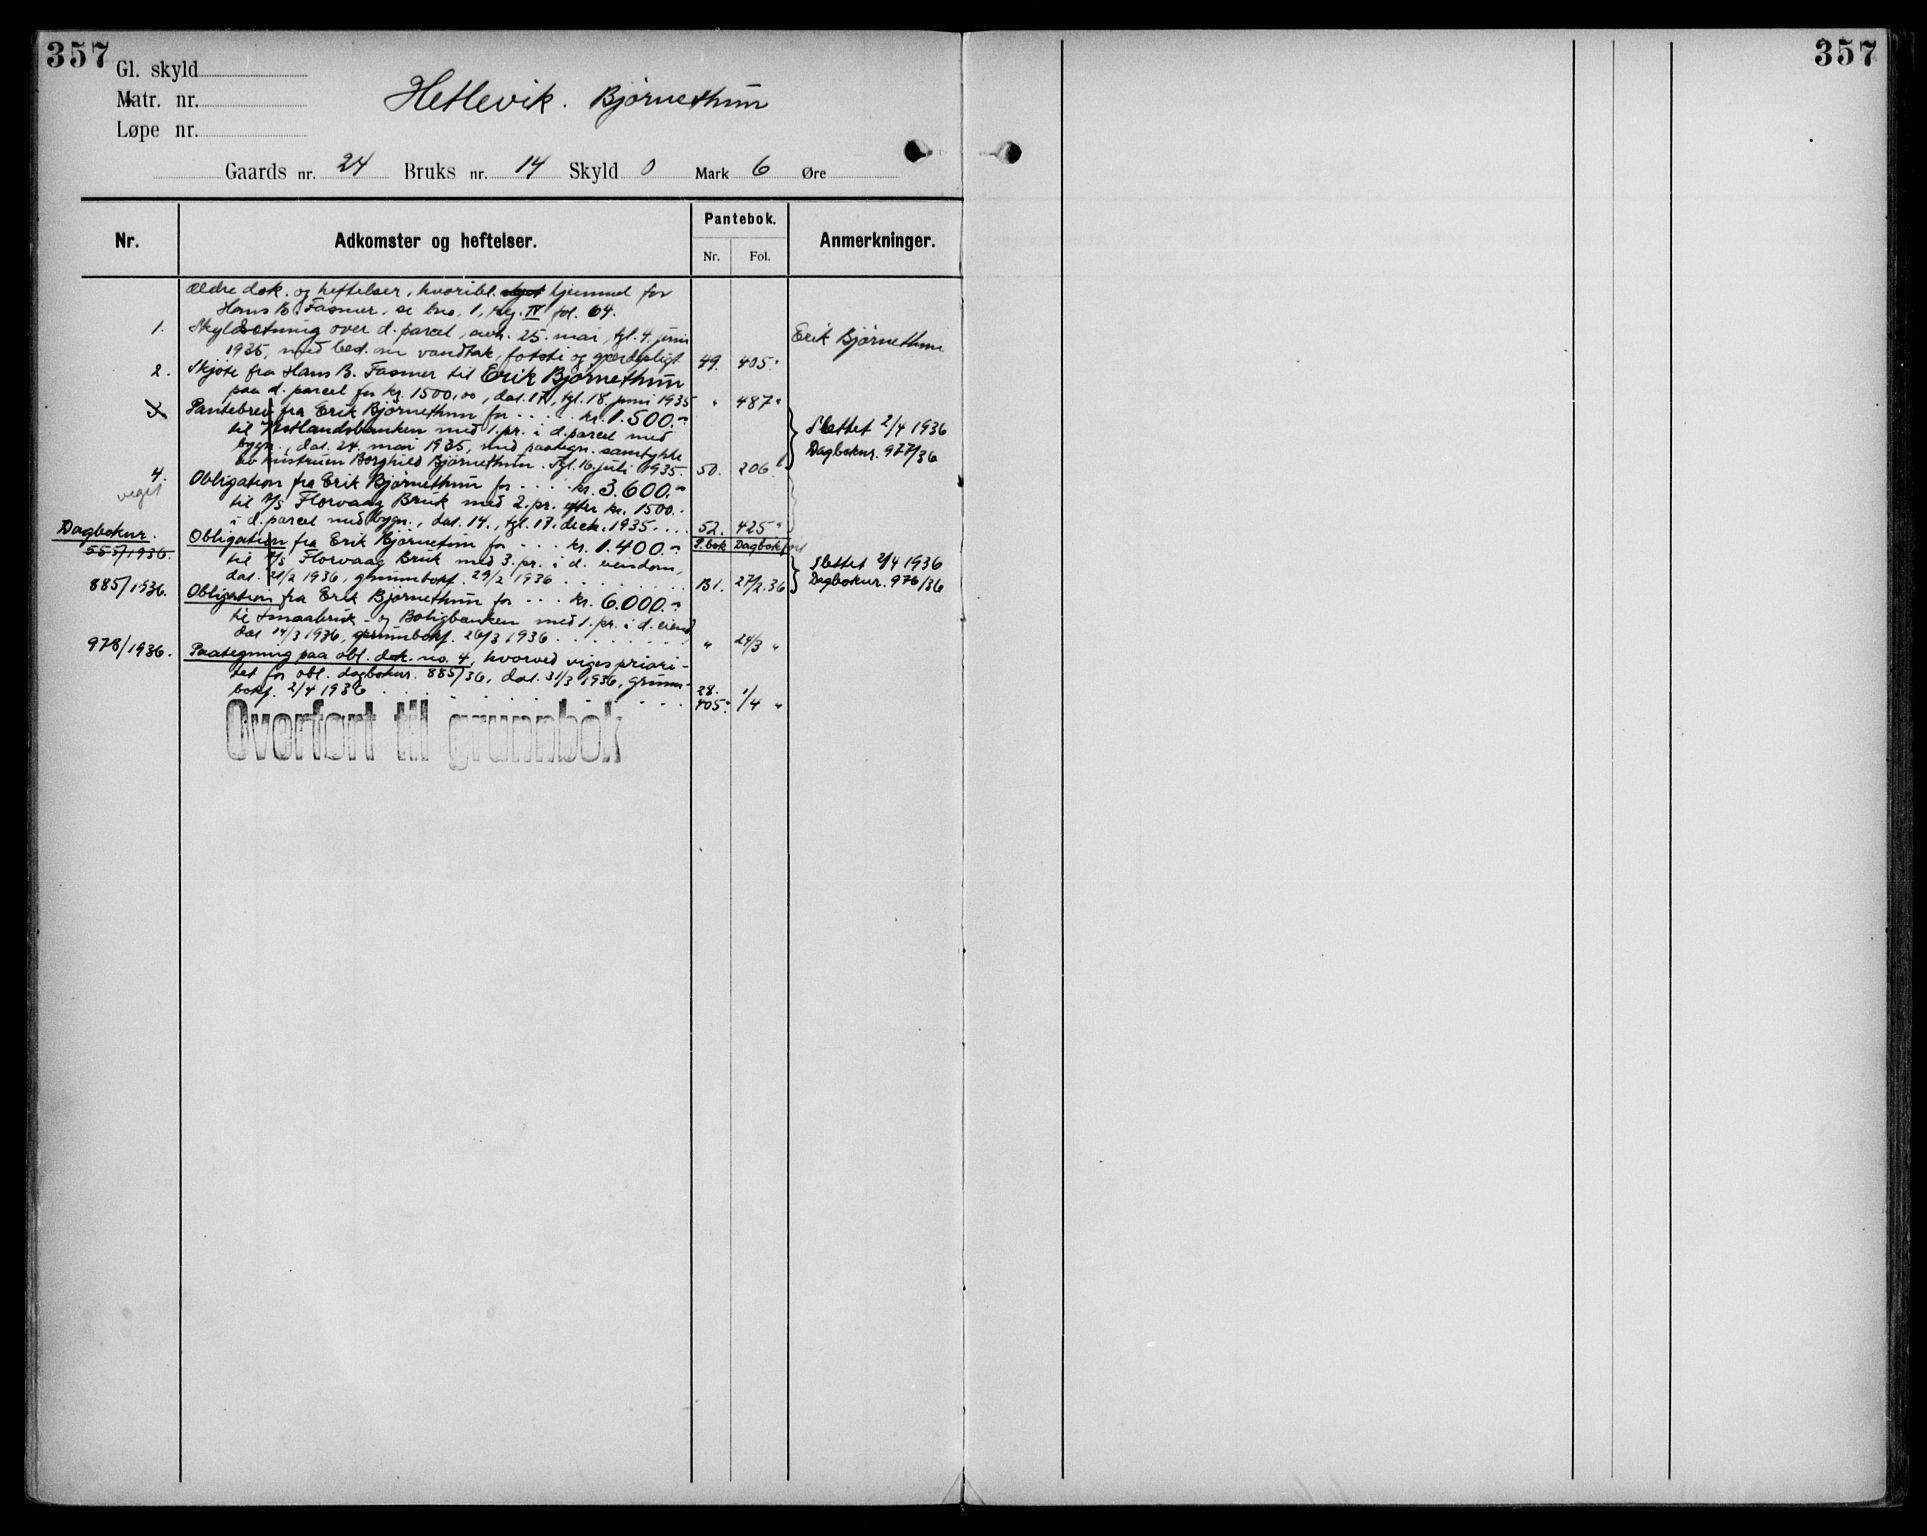 357
357
Gl. skyld
Matr. nr.
Løpe nr.
Hetlevik. Bjørnethun
Gaards nr. 24 Bruks nr. 14 Skyld 0 Mark 6 Øre
Nr. Adkomster og heftelser. Pantebok. Anmerkninger.
Nr. Fol.
Ældre dok. og heftelser, hvoribl. hjemmel for
Hans B. Fasmer, se bno. 1, reg. IV fol. 64.
1. Skyldsetning over d. parcel, avh. 25. mai, tgl. 4. juni
1935, med bed. om vandtak, fotsti og gjerdepligt 49. 405. Erik Bjørnethun
2. Skjøte fra Hans B. Fasmer til Erik Bjørnethun
paa d. parcel for kr. 1500,00, dat. 17, tgl. 18. juni 1935 " 487"
3. Pantebrev fra Erik Bjørnethun for . . . . kr. 1.500.-
til Vestlandsbanken med 1. pr. i d. parcel med
bygn., dat. 24. mai 1935, med paategn. samtykke
av hustruen Borghild Bjørnethun. Tgl. 16. juli 1935. 50. 206 Slettet 2/4 1936
Dagboknr. 977/36
4. Obligation fra Erik Bjørnethun for . . . . kr. 3.600.-
veget
til A/S Florvaag Bruk med 2. pr. efter kr. 1500.-
i d. parcel med bygn., dat. 14., tgl. 17. decb. 1935. . . . 52. 425"
Dagboknr. P.bok Dagbokført
555/1936. Obligation fra Erik Bjørnetun for . . . kr. 1.400.-
til A/S Florvaag Bruk med 3. pr. i d. eiendom,
dat. 21/2 1936, grunnbokf. 29/2 1936 . . . . . . . B1. 27/2.36 Slettet 2/4 1936
Dagboknr. 976/36
885/1936. Obligation fra Erik Bjørnethun for . . . kr. 6.000.-
til Smaabruk- og Boligbanken med 1. pr. i d. eiend,
dat 14/3 1936, grunnbokf. 26/3 1936 . . . . . . . . " 24/3 "
978/1936. Paategning paa obl. dok. no. 4, hvorved viges priori-
tet for obl. dagboknr. 885/36, dat. 31/3 1936, grunn-
bokf. 2/4 1936 . . . . . . . . . . . . . 28.
405. 1/4 "
Overført til grunnbok